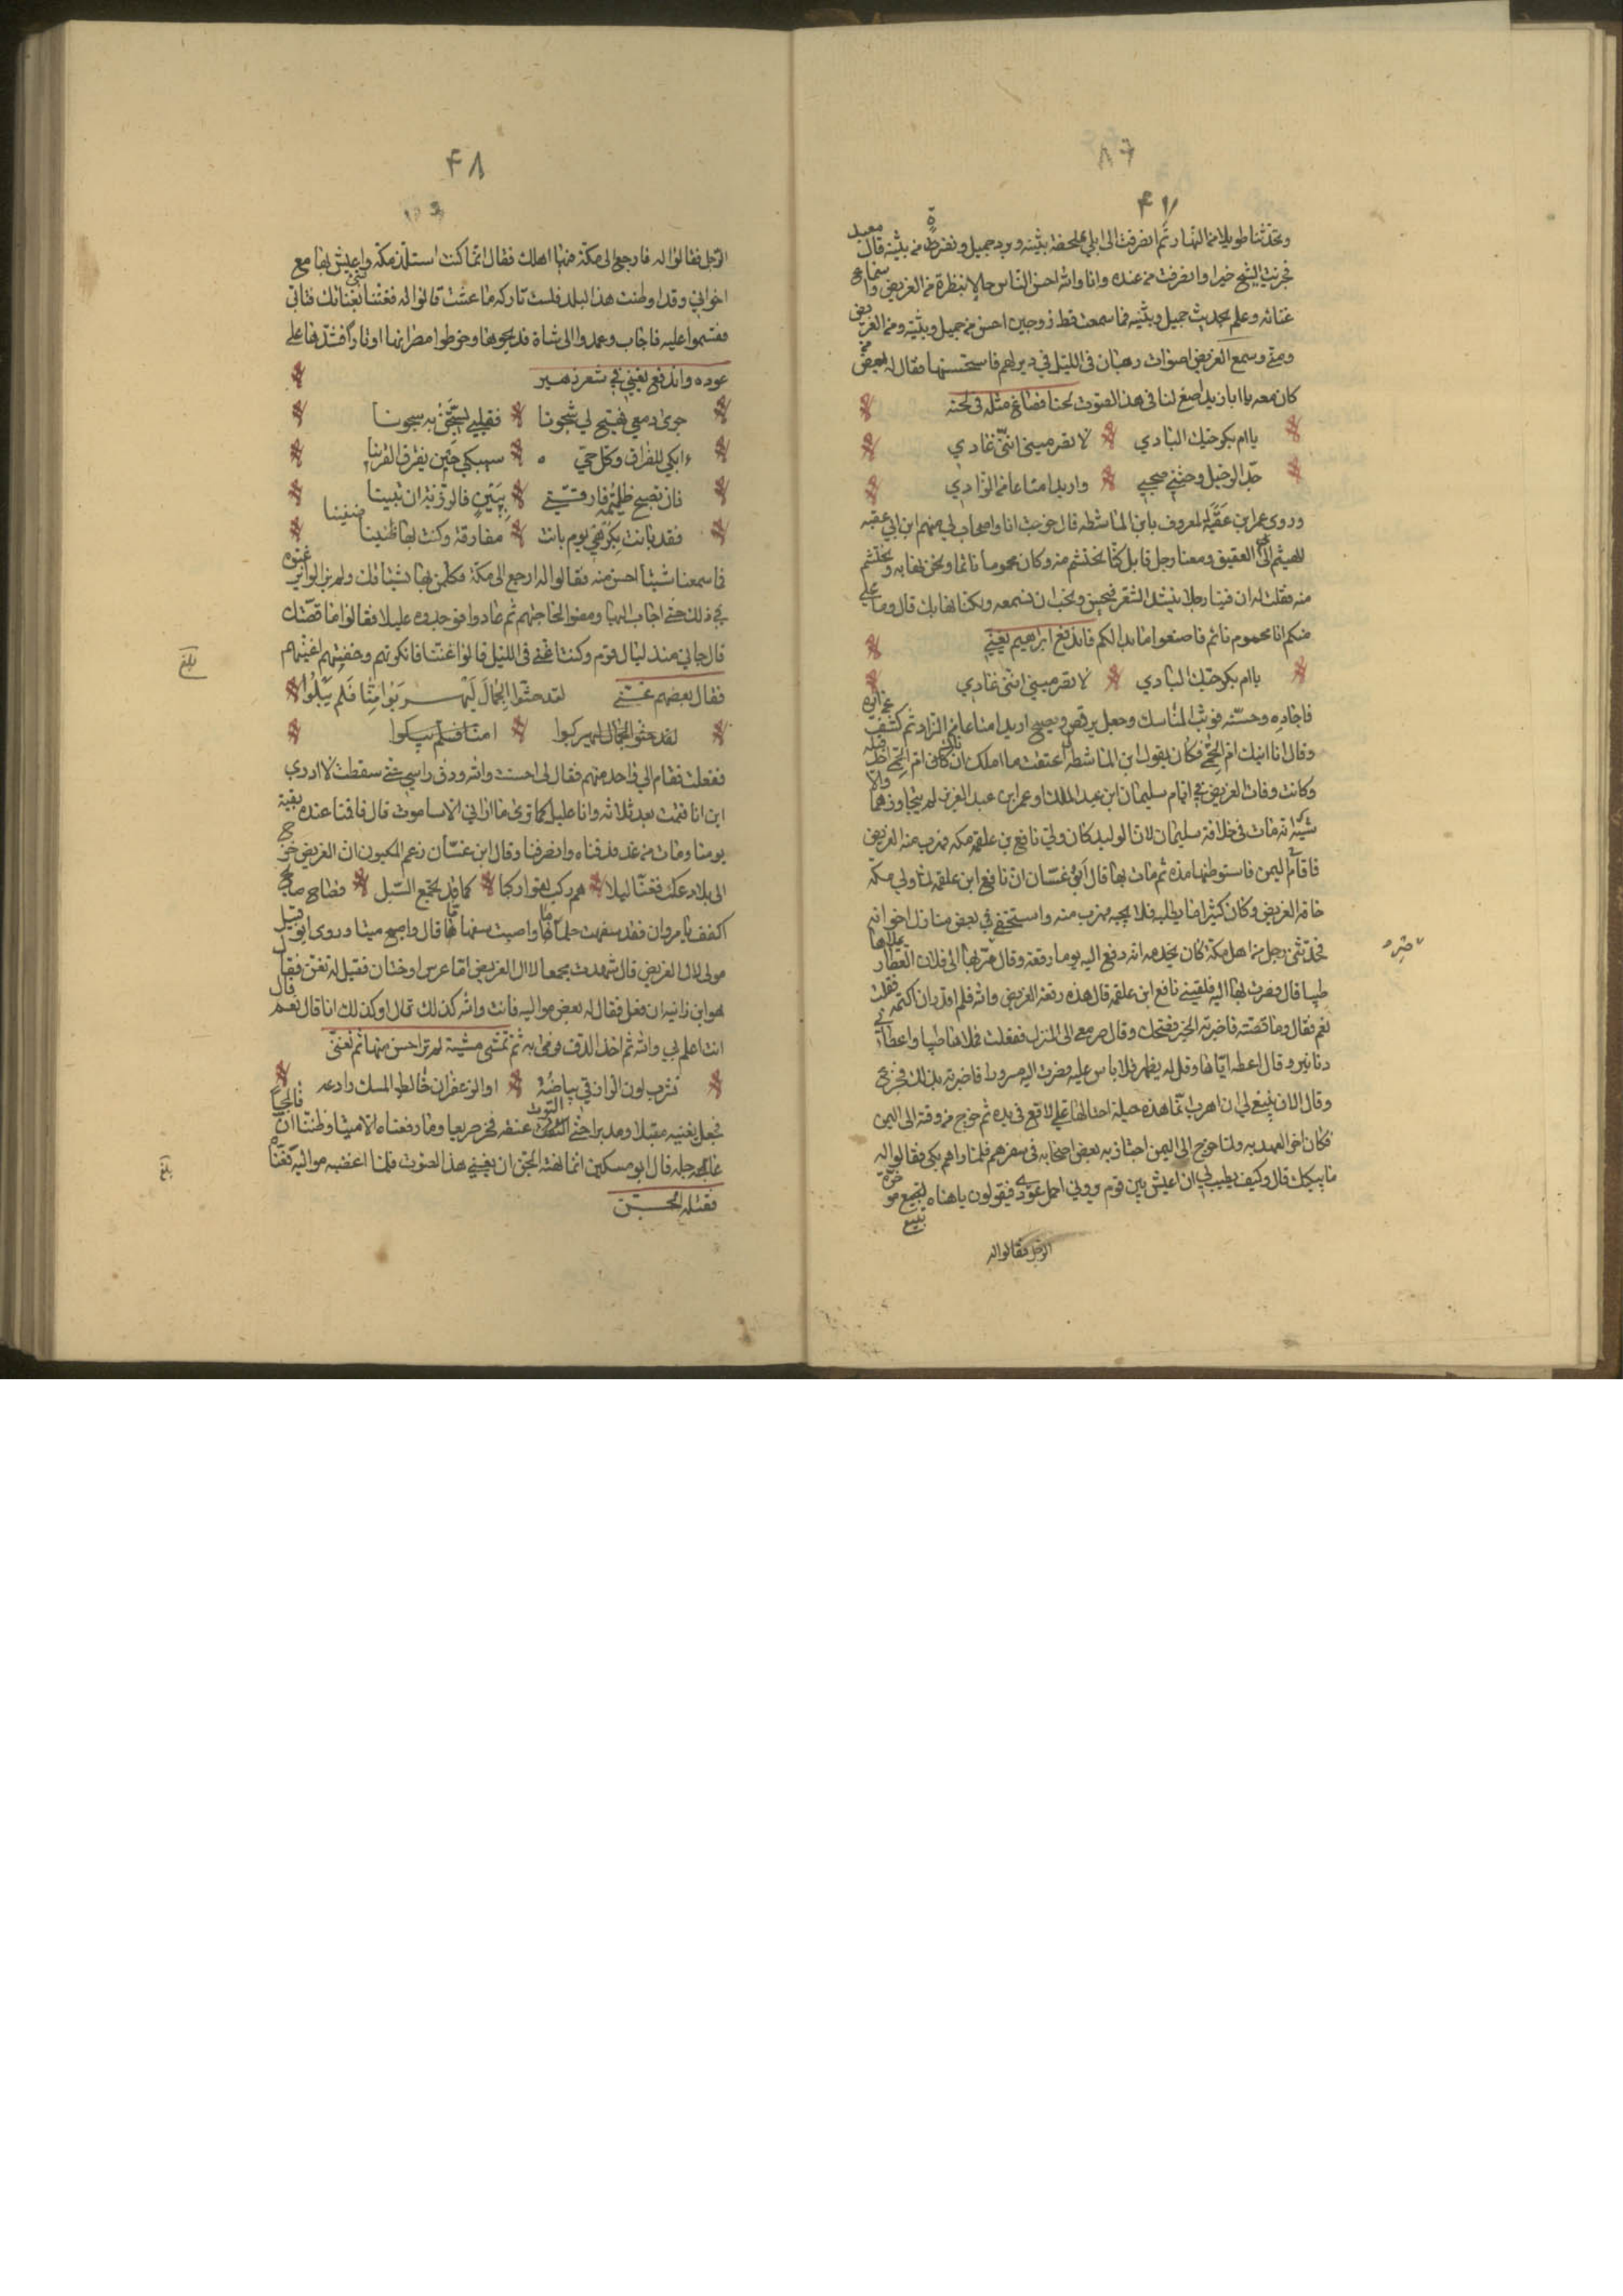 ٨٦
٤٧
وتحدثنا طويلا من النهار ثم انصرفت الى ابلي بملحفة بثينة وبرد جميل وبقرطة من بثينة قال معبد
فجزيت الشيخ خيرا وانصرفت من عنده وانا والله احسن الناس حالا بنظرة من الغريض وسماع
غنائه وعلم بحديث جميل وبثينه فما سمعت قط زوجين احسن من جميل وبثينه ومن الغريض
ومني وسمع الغريض اصوات رهبان في الليل في دير لهم فاستحسنها فقال له بعض من
كان معه يا ابا يزيد صغ لنا في هذا الصوت لحنا فصاغ مثله في لحنه
يا ام بكر حبك البادي لا تصرميني انني غادي
جد الرحيل وحثني صحبي واريد امتاعا من الزاد
وروى عمر ابن عقبة المعروف بابن الماشطه قال خرجت انا واصحاب لي منهم ابن ابي عقبه
الهيثم الى العقيق ومعنا رجل كنا نحتشم منه وكان محموما نائما ونحن نهابه ونحتشم
منه فقلت له ان فينا رجلا ينشد الشعر فيحسن ونحب ان نسمعه ولكنا نهابك قال وما علي
منكم انا محموم نائم فاصنعوا ما بدا لكم فاندفع ابراهيم يغني
يا ام بكر حبك البادي لا تصرميني انني غادي
فاجاده وحسنه فوثب الناسك وجعل يرقص ويصيح اريد امتاعا من الزاد ثم كشف عن ايره
وقال انا انيك ام الحمى فكان يقول لي ابن الماشطه اعتقت ما املك ان كان ناك ام الحمى احد قبله
وكانت وفات الغريض في ايام سليمان ابن عبد الملك او عمر ابن عبد العزيز لم يتجاوزهما والا
شبه انه مات في خلافة سليمان لان الوليد كان ولى نافع بن علقمه مكه فهرب منه الغريض
فاقام اليمن فاستوطنها مدة ثم مات بها قال ابو غسان ان نافع ابن علقمه لما ولي مكة
خافه الغريض وكان كثيرا ما يطلبه فلا يجيه فهرب منه واستخفى في بعض منازل اخوانه
فحدثني رجل من اهل مكة كان يخدمه انه دفع اليه يوما رقعة وقال صر بها الى فلان العطار يملاها
طيبا قال فصرت بها اليه فلقيني نافع ابن علقمه قال هذه رقعة الغريض والله فلم اقدر ان اكتمه فقلت
نعم فقال وما قصته فاخبرته الخبر فضحك وقال سر معي الى المنزل ففعلت فملاها طيبا واعطاني
دنانير وقال اعطه اياها وقل له يظهر فلا باس عليه فصرت اليه مسرورا فاخبرته بذلك فجزع
وقال الان ينبغي لي ان اهرب انما هذه حيلة احتالها علي لاقع في يده ثم خرج من وقته الى اليمن
فكان اخر العهد به ولما خرج الى اليمن اجتاز به بعض اصحابه في سفرهم فلما راهم بكى فقالوا له
ما يبكيك قال وكيف يطيب لي ان اعيش بين قوم يروني احمل عودي فيقولون يا هناه اتبيع موخرة
تبيع
الرحل فقالوا له
٤٨
الرحل فقالوا له فارجع الى مكة ففيها اهلك فقال انما كنت استلذ مكة واعيش بها مع
اخواني وقد اوطنت هذا البلد فلست تاركه ما عشت قالوا له فغننا بغنائك فتابى
فقسموا عليه فاجاب وعمدوا الى شاة فذبحوها وخرطوا مصرانها اوتارا فشدها على
عوده واندفع يغني في شعر زهير
جرى دمعي فهيج لي شجونا فقلبي يستجن به جنونا
ءابكي للفراق وكل حي سيبكي حين يفرق القرينا
فان تصبح ظليمة فارقتني ببين فالرزية ان تبينا
فقد بانت بكرهي يوم بانت مفارقة وكنت بها ظنينا
ضنينا
فما سمعنا شيئا احسن منه فقالوا له ارجع الى مكة فكل من بها يشتاقك ولم يزالوا
في ذلك حتى اجاب اليها ومضوا لحاجتهم ثم عادوا فوجدوه عليلا فقالوا ما قصتك
قال جاني منذ ليال قوم وكنت اغني في الليل قالوا غننا فانكرتهم وخفتهم لغنيهم
فقال بعضهم غنني لقد حثوا الجمال ليهربوا منا فلم يئلوا
لقد حثوا الجمال ليهربوا منا فلم يئلوا
ففعلت فقام الي واحد منهم فقال لي احسنت والله ودق راسي حتى سقطت لا ادري
اين انا فقمت بعد ثلاثة وانا عليل كما ترى ما اراني الا ساموت قال فاقمنا عنده بقية
يومنا ومات من غد فدفناه وانصرفنا وقال ابن غسان زعم المكيون ان الغريض خرج
الى بلاد عك فغنا ليلا هم ركب لقوا ركبا كما قد تجمع السبل فصاح صائح
اكفف يا مروان فقد سفهت حلمانا واصبت سفهانا قال واصبح ميتا وروى ابو قبيل
مولى لال الغريض قال شهدت مجمعا لال الغريض اما عرس او ختان فقيل له تغن فقال
هو ابن زانيه ان فعل فقال له بعض مواليه فانت والله كذلك قال او كذلك انا قال نعم
انت اعلم بي والله ثم اخذ الدف فرمى به ثم تمشى مشية لم تر احسن منها ثم تغنى
تشرب لون الرازقي بياضه او الزعفران خالط المسك رادعه
فجعل يغنيه مقبلا ومدبرا حتى التوت عنقه فخر صريعا وما رفعناه الا ميتا وظننا ان فالجا
عاجله قال ابو مسكين انما نهته الجن ان يغني هذا الصوت فلما اغضبه مواليه تغنا
فقتله الجن
بلغ
بلغ